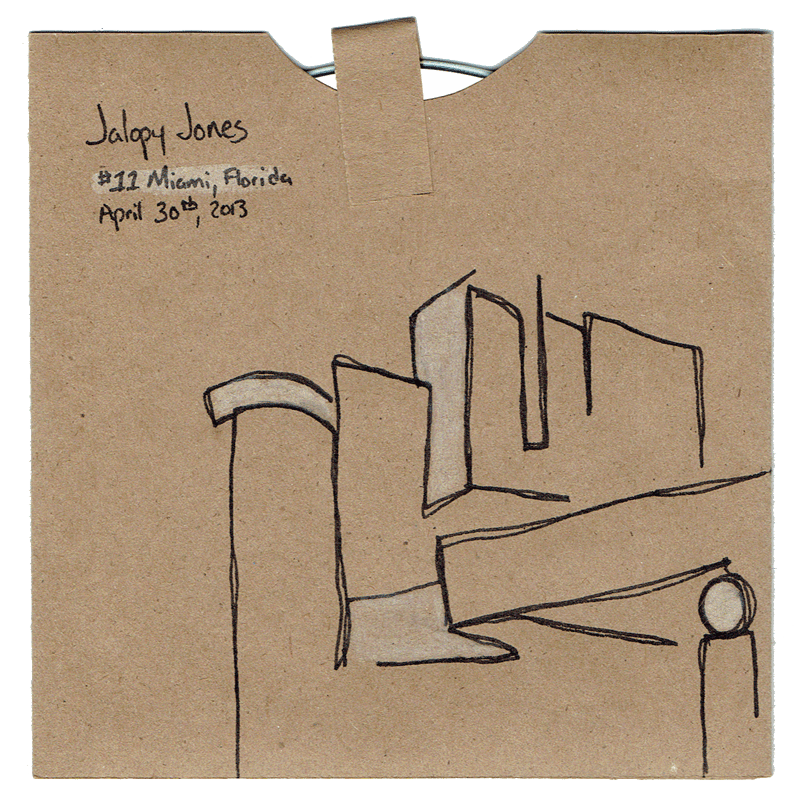 Jalopy Jones
#11 Miami, Florida
April 30th, 2013